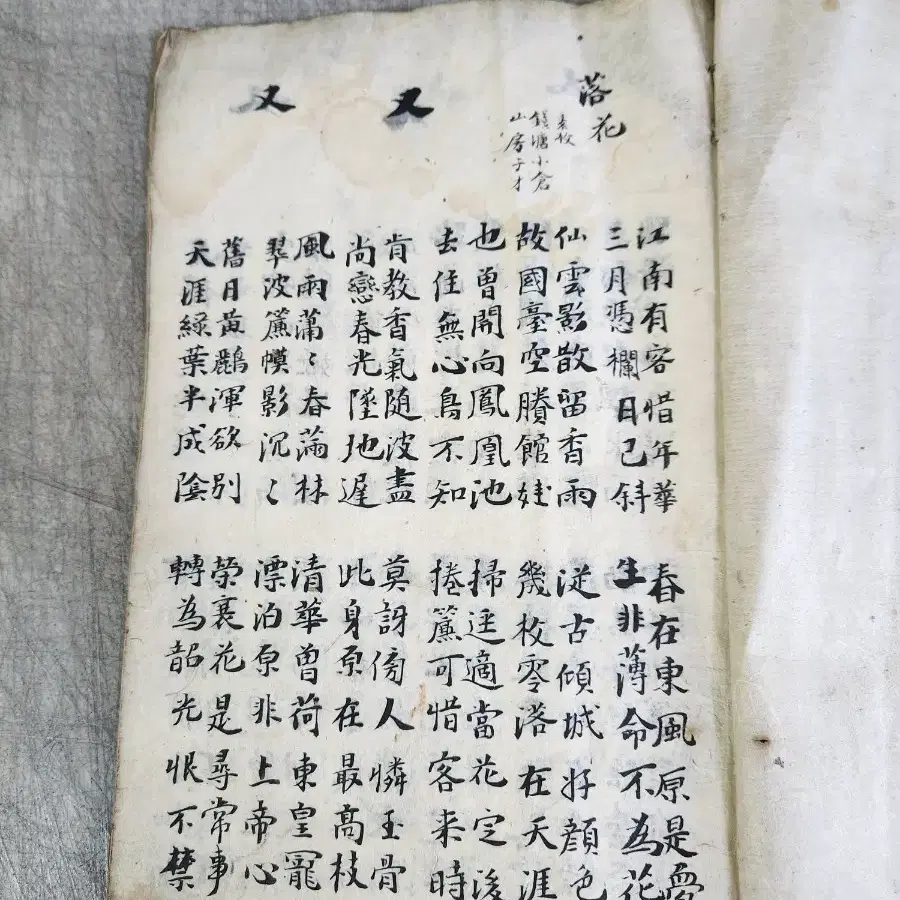 落花
袁枚
錢塘小倉
山房子才
江南有客惜年華
三月憑欄日已斜
春在東風原是夢
生非薄命不為花
仙雲影散留香雨
故國臺空賸館娃
從古傾城好顏色
幾枝零落在天涯
又
也曾開向鳳凰池
去住無心鳥不知
掃逕適當花定後
捲簾可惜客來時
肯教香氣隨波盡
尚戀春光墜地遲
莫訝傍人憐玉骨
此身原在最高枝
又
風雨蕭〻春滿林
翠波簾幙影沉〻
清華曾荷東皇寵
漂泊原非上帝心
舊日黃鸝渾欲別
天涯綠葉半成陰
榮衰花是尋常事
轉為韶光恨不禁